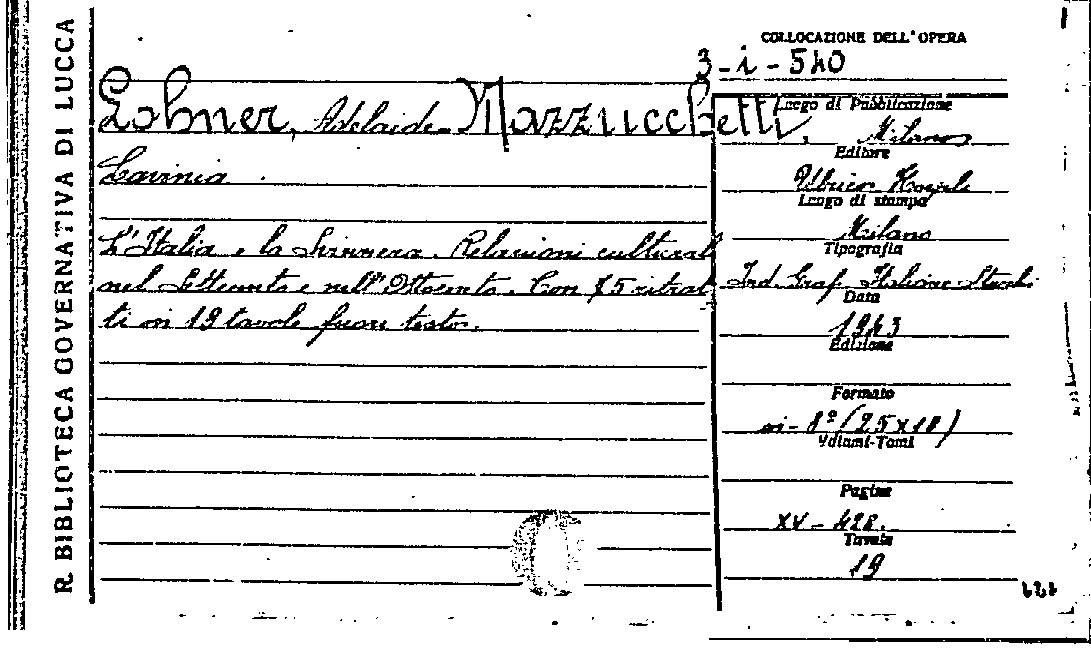 R. BIBLIOTECA GOVERNATIVA DI LUCCA
COLLOCAZIONE DELL'OPERA
3-i-540
Lohner, Adelaide. Mazzucchetti,
Lavinia.
L'Italia e la Svizzera. Relazioni cultural
nel Settecento e nell'Ottocento. Con 75 ritrat
ti in 19 tavole fuori testo.
Luogo di Pubblicazione
Milano
Editore
Ulrico Hoepli
Luogo di stampa
Milano
Tipografia
Ind. Graf. Italiane Stucchi
Data
1943
Edizione
Formato
in-8° (25x18)
Volumi-Tomi
Pagine
XV-428.
Tavole
19